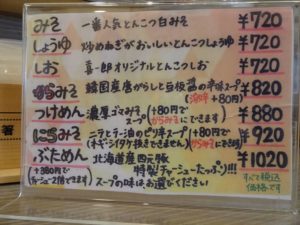 みそ 一番人気とんこつ白みそ ¥720
しょうゆ 炒めねぎがおいしいとんこつしょうゆ ¥720
しお 喜一郎オリジナルとんこつしお ¥720
からみそ 韓国産唐がらし白根醤の辛味スープ ¥820
+80円)
つけめん 濃厚ゴマみそスープ (+80円でからみそにできます) ¥880
にらみそ ニラとラー油のピリ辛スープ ¥920
(ネギ・シイタケ抜きできません)
(+80円でからみそにできます)
ぶためん 北海道産四元豚 ¥1020
特製チャーシューたっぷり!!!
(+380円でチャーシュー2倍できます)
スープの味はお選びください
すべて税込価格です
箸